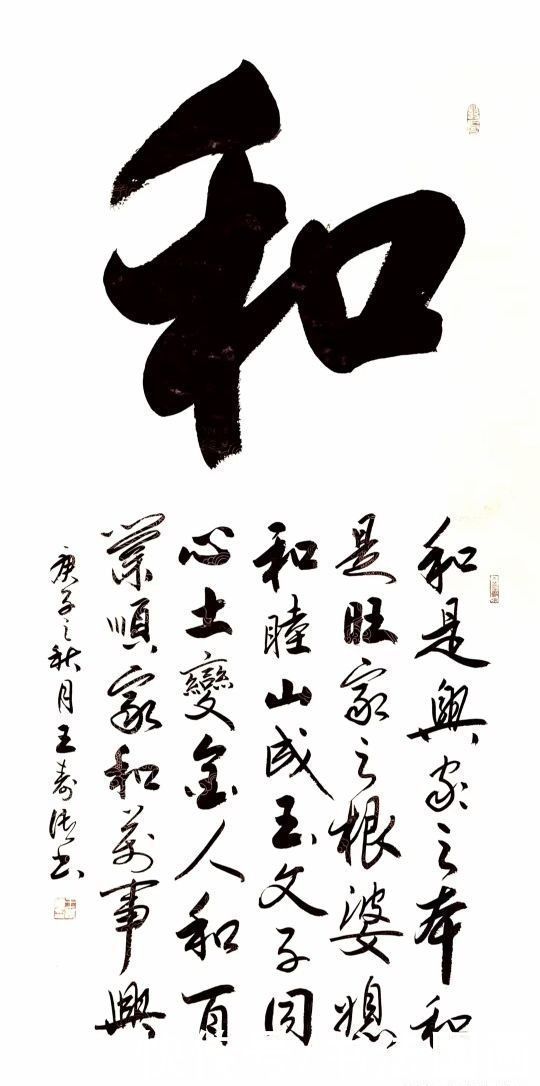 和
和是興家之本和
是旺家之根婆媳
和睦山成玉父子同
心土變金人和百
業順家和萬事興
庚子之秋月王寿书